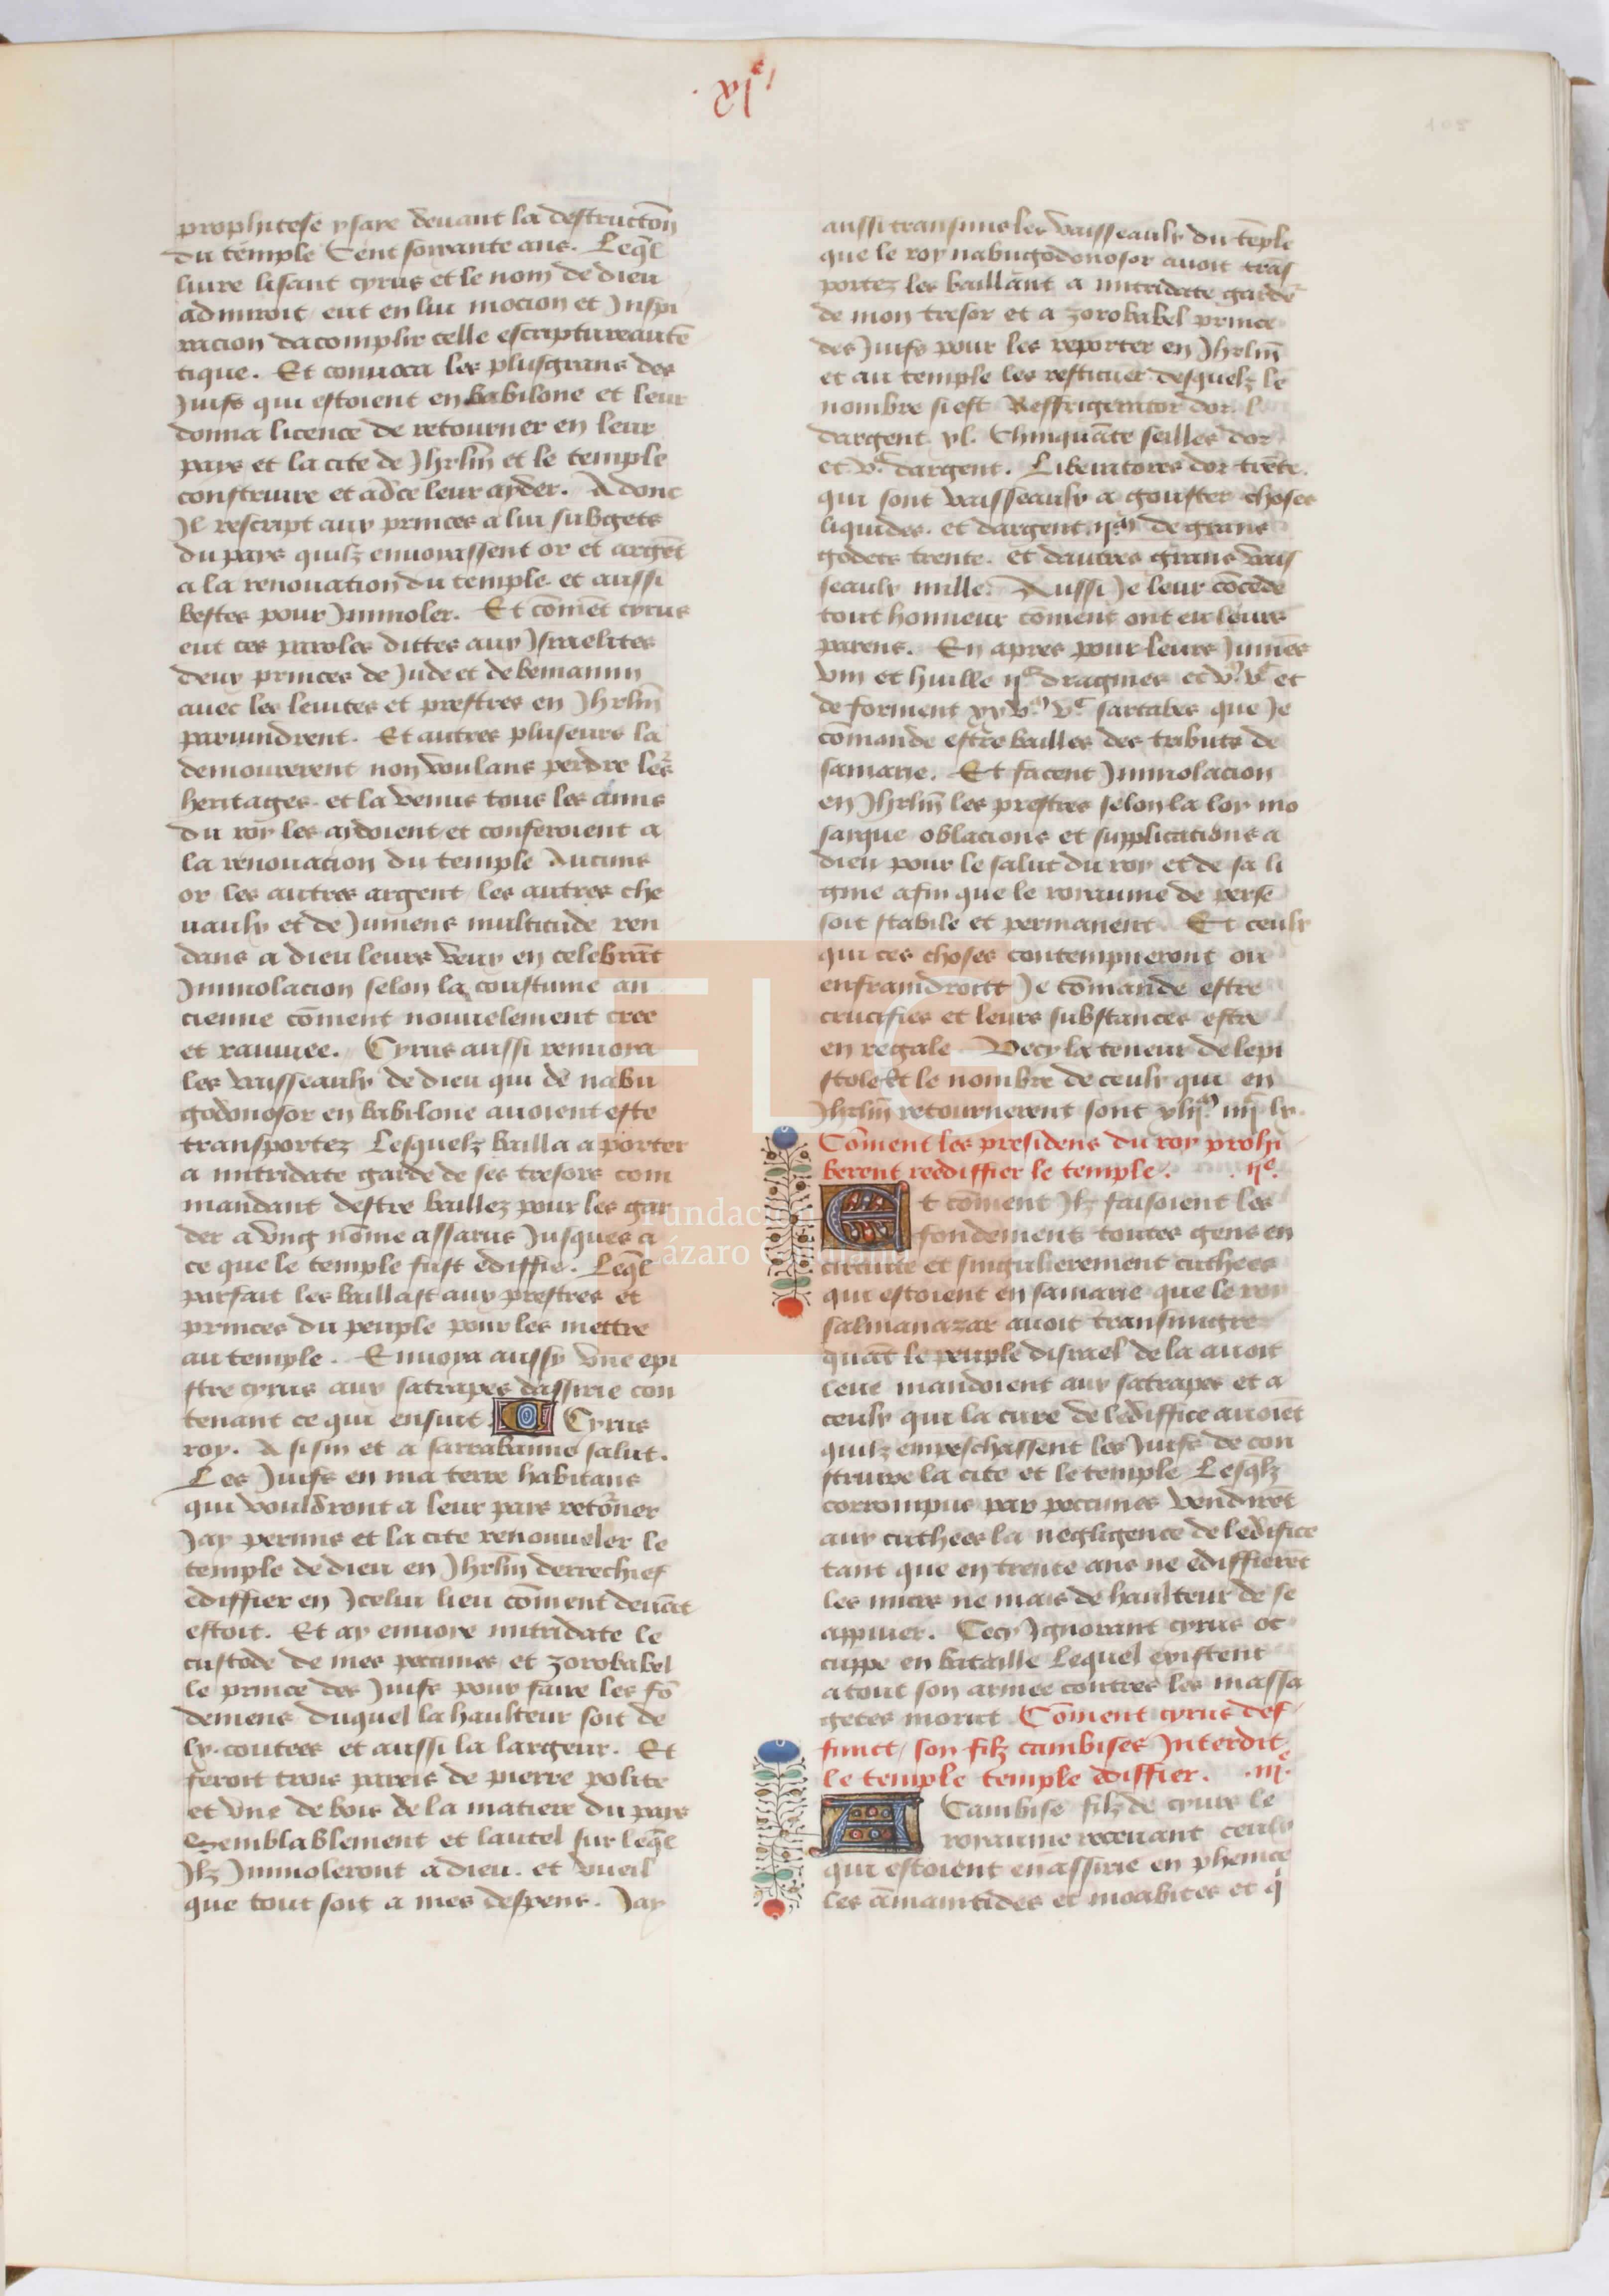 .xi.e
prophitese ysaye deuant la destructōn
du temple Cent soixante ans. Leq̄l
liure lisant cyrus et le nom de dieu
admiroit eut en lui mocion et Inspi
racion dacomplir celle escripture autē
tique. Et conuoca les plusgrans des
Juifs qui estoient en babilone et leur
donna licence de retourner en leur
pays et la cite de Jhrlm̄ et le temple
construire et ad ce leur ayder. Adonc
Jl rescript aux princes a lui subgets
du pays quilz enuoyassent or et argēt
a la renouation du temple et aussi
bestes pour Jmmoler. Et cōmēt cyrus
eut ces paroles dittes aux Israelites
deux princes de Jude et de beniamin
auec les leuites et prestres en Jhrlm̄
paruindrent. Et autres pluseurs la
demourerent non voulans perdre ler̄s
heritages. et la venus tous les amis
du roy les aydoient et conferoient a
la renouacion du temple Aucuns
or les autres argent les autres che
uaulx et de Jumens multitude ren
dans a dieu leurs veux en celebrāt
Jmmolacion selon la coustume an
cienne cōment nouuelement cree
et rauiuee. Cyrus aussi renuoya
les vaisseaulx de dieu qui de nabu
godonosor en babilone auoient este
transportez Lesquelz bailla a porter
a mitridate garde de ses tresors com
mandant destre baillez pour les gar
der a vng nōme assarus Jusques a
ce que le temple fust ediffie. Leq̄l
parfait les baillast aux prestres et
princes du peuple pour les mettre
au temple. Enuoya aussy vne epi
stre cyrus aux satrapes dassirie con
tenant ce qui ensuit. Cyrus
roy. A sisin et a sarrabanne salut.
Les Juifs en ma terre habitans
qui vouldront a leur pais retōner
Jay permis et la cite renouueler le
temple de dieu en Jhrlm̄ derrechief
ediffier en Jcelui lieu cōment deuāt
estoit. Et ay enuoye mitridate le
custode de mes peccunes et zorobabel
le prince des Juifs pour faire les fō
demens duquel la haulteur soit de
lx. coutees et aussi la largeur. Et
feront trois pareis de pierre polite
et vne de bois de la matiere du pays
Semblablement et lautel sur leq̄l
Jlz Jmmoleront a dieu. et vueil
que tout soit a mes despens. Jay
aussi transmis les vaisseaulx du tēple
que le roy nabugodonosor auoit trās
portez les baillant a mitridate garde
de mon tresor et a zorobabel prince
des Juifs pour les reporter en Jhrlm̄
et au temple les restituer desquelz le
nombre si est Reffrigerator dor. l
dargent. xl. Chinquāte seilles dor
et v.c dargent. Liberatores dor trēte.
qui sont vaisseaulx a gouster choses
liquides. et dargent. ij.m de grans
godets trente. et dautres grans vais
seaulx mille. Aussi Je leur cōcede
tout honneur cōment ont eu leurs
parens. En apres pour leurs Jumēs
vin et huille ij.c dragmes et v.m v.c et
de forment xxv.m v.c sartabes que Je
cōmande estre bailles des tributs de
samarie. Et facent Jmmolacion
en Jhrlm̄ les prestres selon la loy mo
sayque oblacions et supplications a
dieu pour le salut du roy et de sa li
gnie afin que le royaume de perse
soit stabile et permanent. Et ceulx
qui ces choses contempneront ou
enfraindroīt Je cōmande estre
crucifies et leurs substances estre
en regale Vecy la teneur de lepi
stole Et le nombre de ceulx qui en
Jhrlm̄ retournerent sont xlij.m iiijc lx.
Cōment les presidens du roy prohi
berent reediffier le temple. ije.
Et cōment Jlz faisoient les
fondemens toutes gens en
circuite et singulierement cuthees
qui estoient en samarie que le roy
salmanazar auoit transmigre
quāt le peuple disrael de la auoit
leue mandoient aux satrapes et a
ceulx qui la cure de lediffice auoiēt
quilz empeschassent les Juifs de con
struire la cite et le temple Lesq̄lz
corrompus par peccunes vendirēt
aux cuthees la negligence de ledifice
tant que en trente ans ne ediffierēt
les murs ne mais de haulteur de se
appuier. Cecy Jgnorant cyrus oc
cuppe en bataille Lequel existent
a tout son armee contres les massa
getes morut Cōment cyrus def
funct, son filz cambises Jnterdit
le temple temple ediffier. .iije.
A Cambise filz de cyrus le
royaume receuant ceulx
qui estoient en assirie en phenice
les āmanitides et moabites et q̄
Fundación
Lázaro Galdiano
FLG